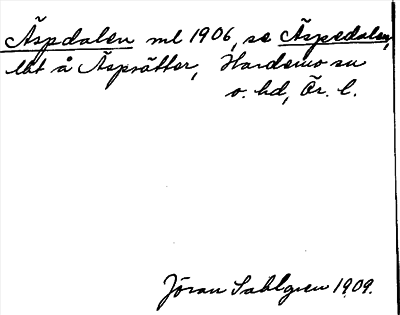 Äspdalen ml 1906, se Äspedalen,
lht å Äspsätter, Hardemo sn
o. hd, Ör. l.
Jöran Sahlgren 1909.